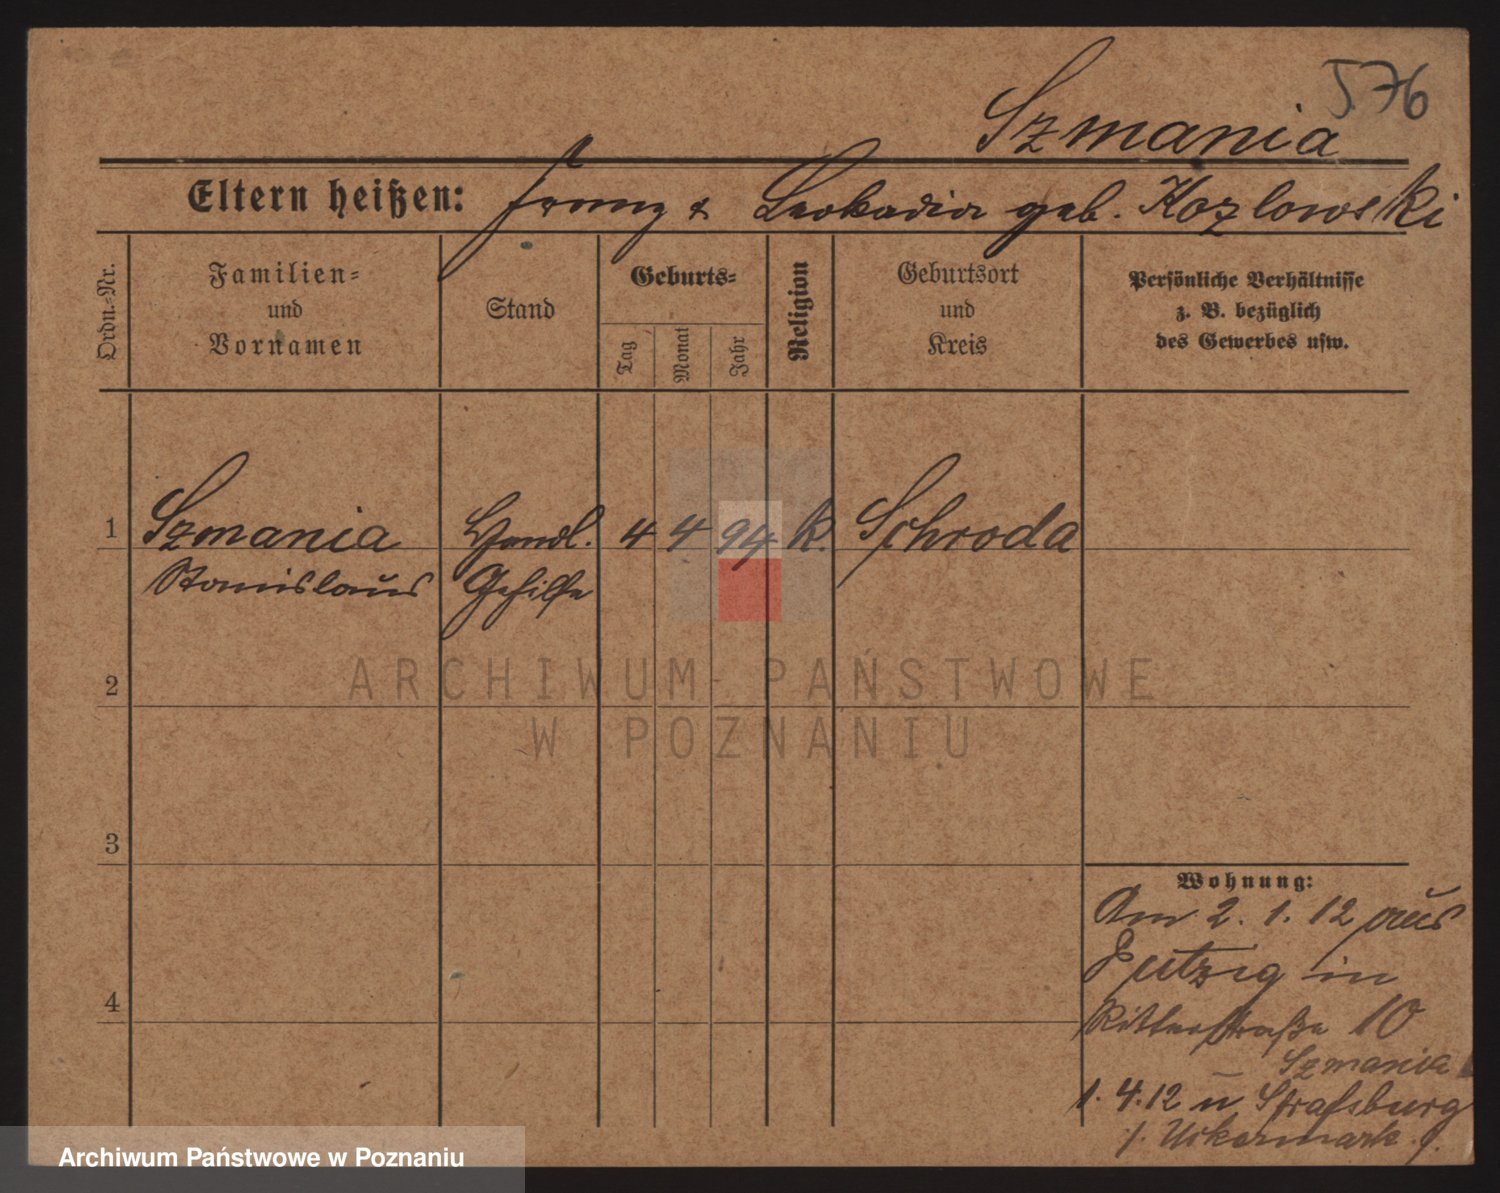 576
Szmania
Eltern heißen: Franz & Leokadia geb. Kozlowski
Ordn.-Nr.
Familien-
und
Vornamen
Stand
Geburts-
Tag
Monat
Jahr
Religion
Geburtsort
und
Kreis
Persönliche Verhältnisse
z. B. bezüglich
des Gewerbes usw.
1 Szmania Handl. 4 4 94 K. Schroda
Stanislaus Gehilfe
2
ARCHIWUM PAŃSTWOWE
W POZNANIU
3
Wohnung:
Am 2. 1. 12 aus
in
4
Ritterstraße 10
Szmania
1. 4. 12 n Strasburg
Uckermark
Archiwum Państwowe w Poznaniu